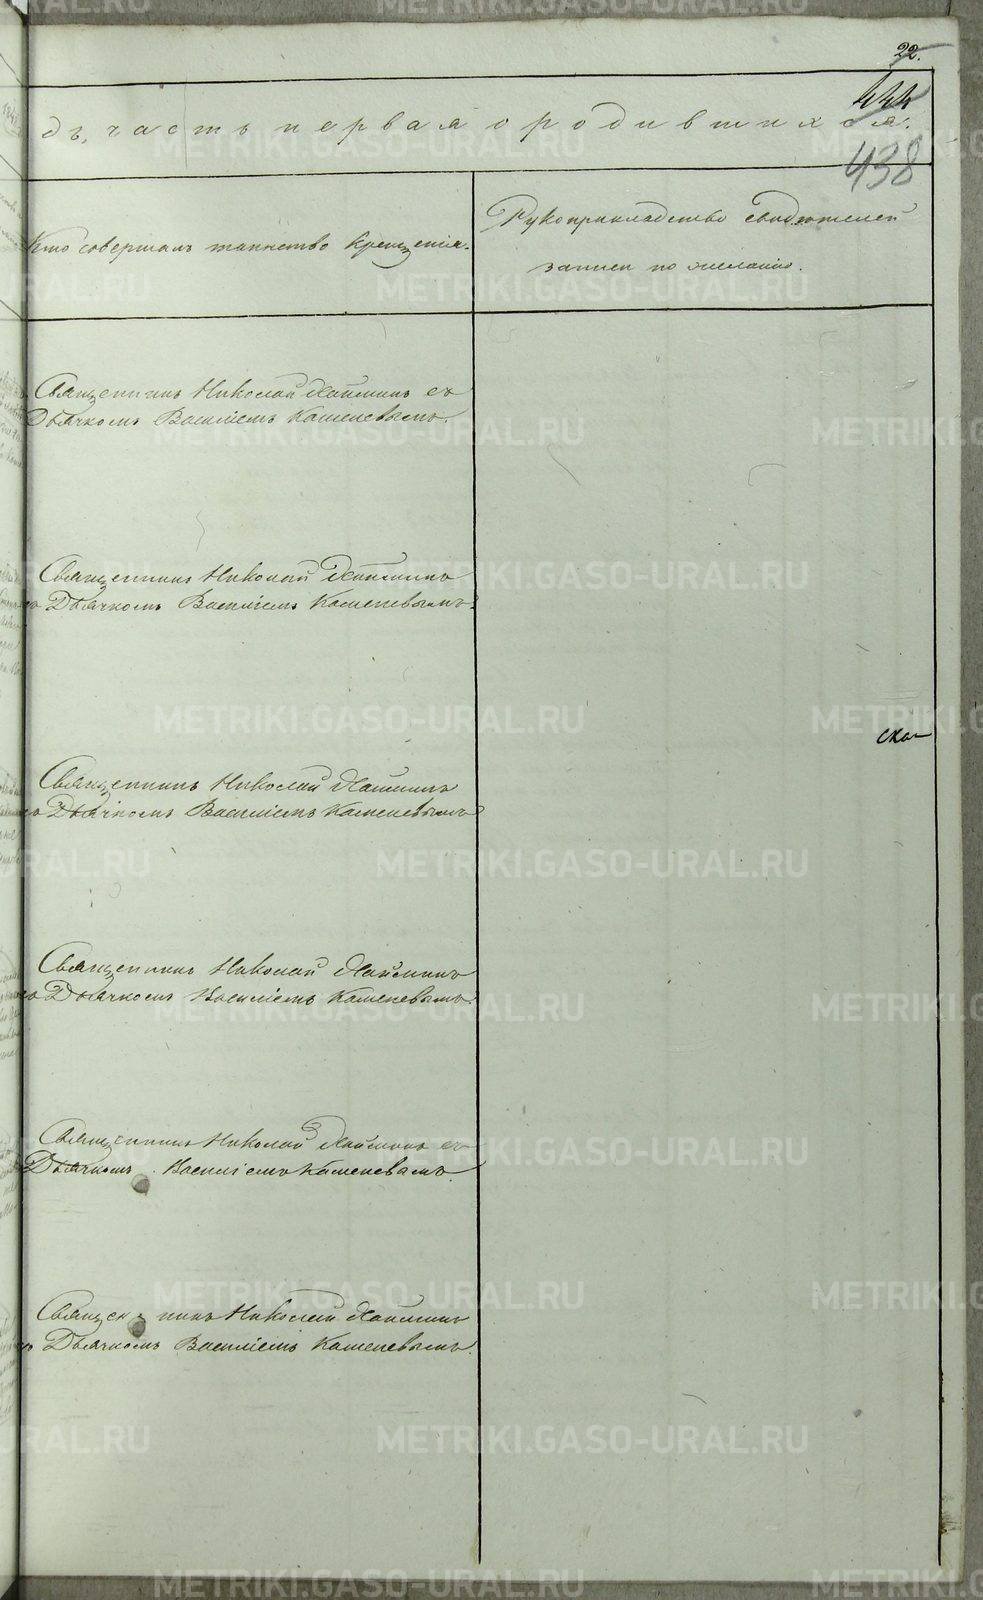 22.
444
дъ, часть первая о родившихся.
438
Кто совершалъ таинство крещенія.
Рукоприкладство свидѣтелей
записи по желанію.
Священникъ Николай съ
Дьячкомъ Василіемъ Каменевымъ.
Священникъ Николай
съ Дьячкомъ Василіемъ Каменевымъ.
ска
Священникъ Николай
съ Дьячкомъ Василіемъ Каменевымъ
Священникъ Николай
съ Дьячкомъ Василіемъ Каменевымъ.
Священникъ Николай съ
Дьячкомъ Василіемъ Каменевымъ.
Священникъ Николай
съ Дьячкомъ Василіемъ Каменевымъ.
METRIKI.GASO-URAL.RU